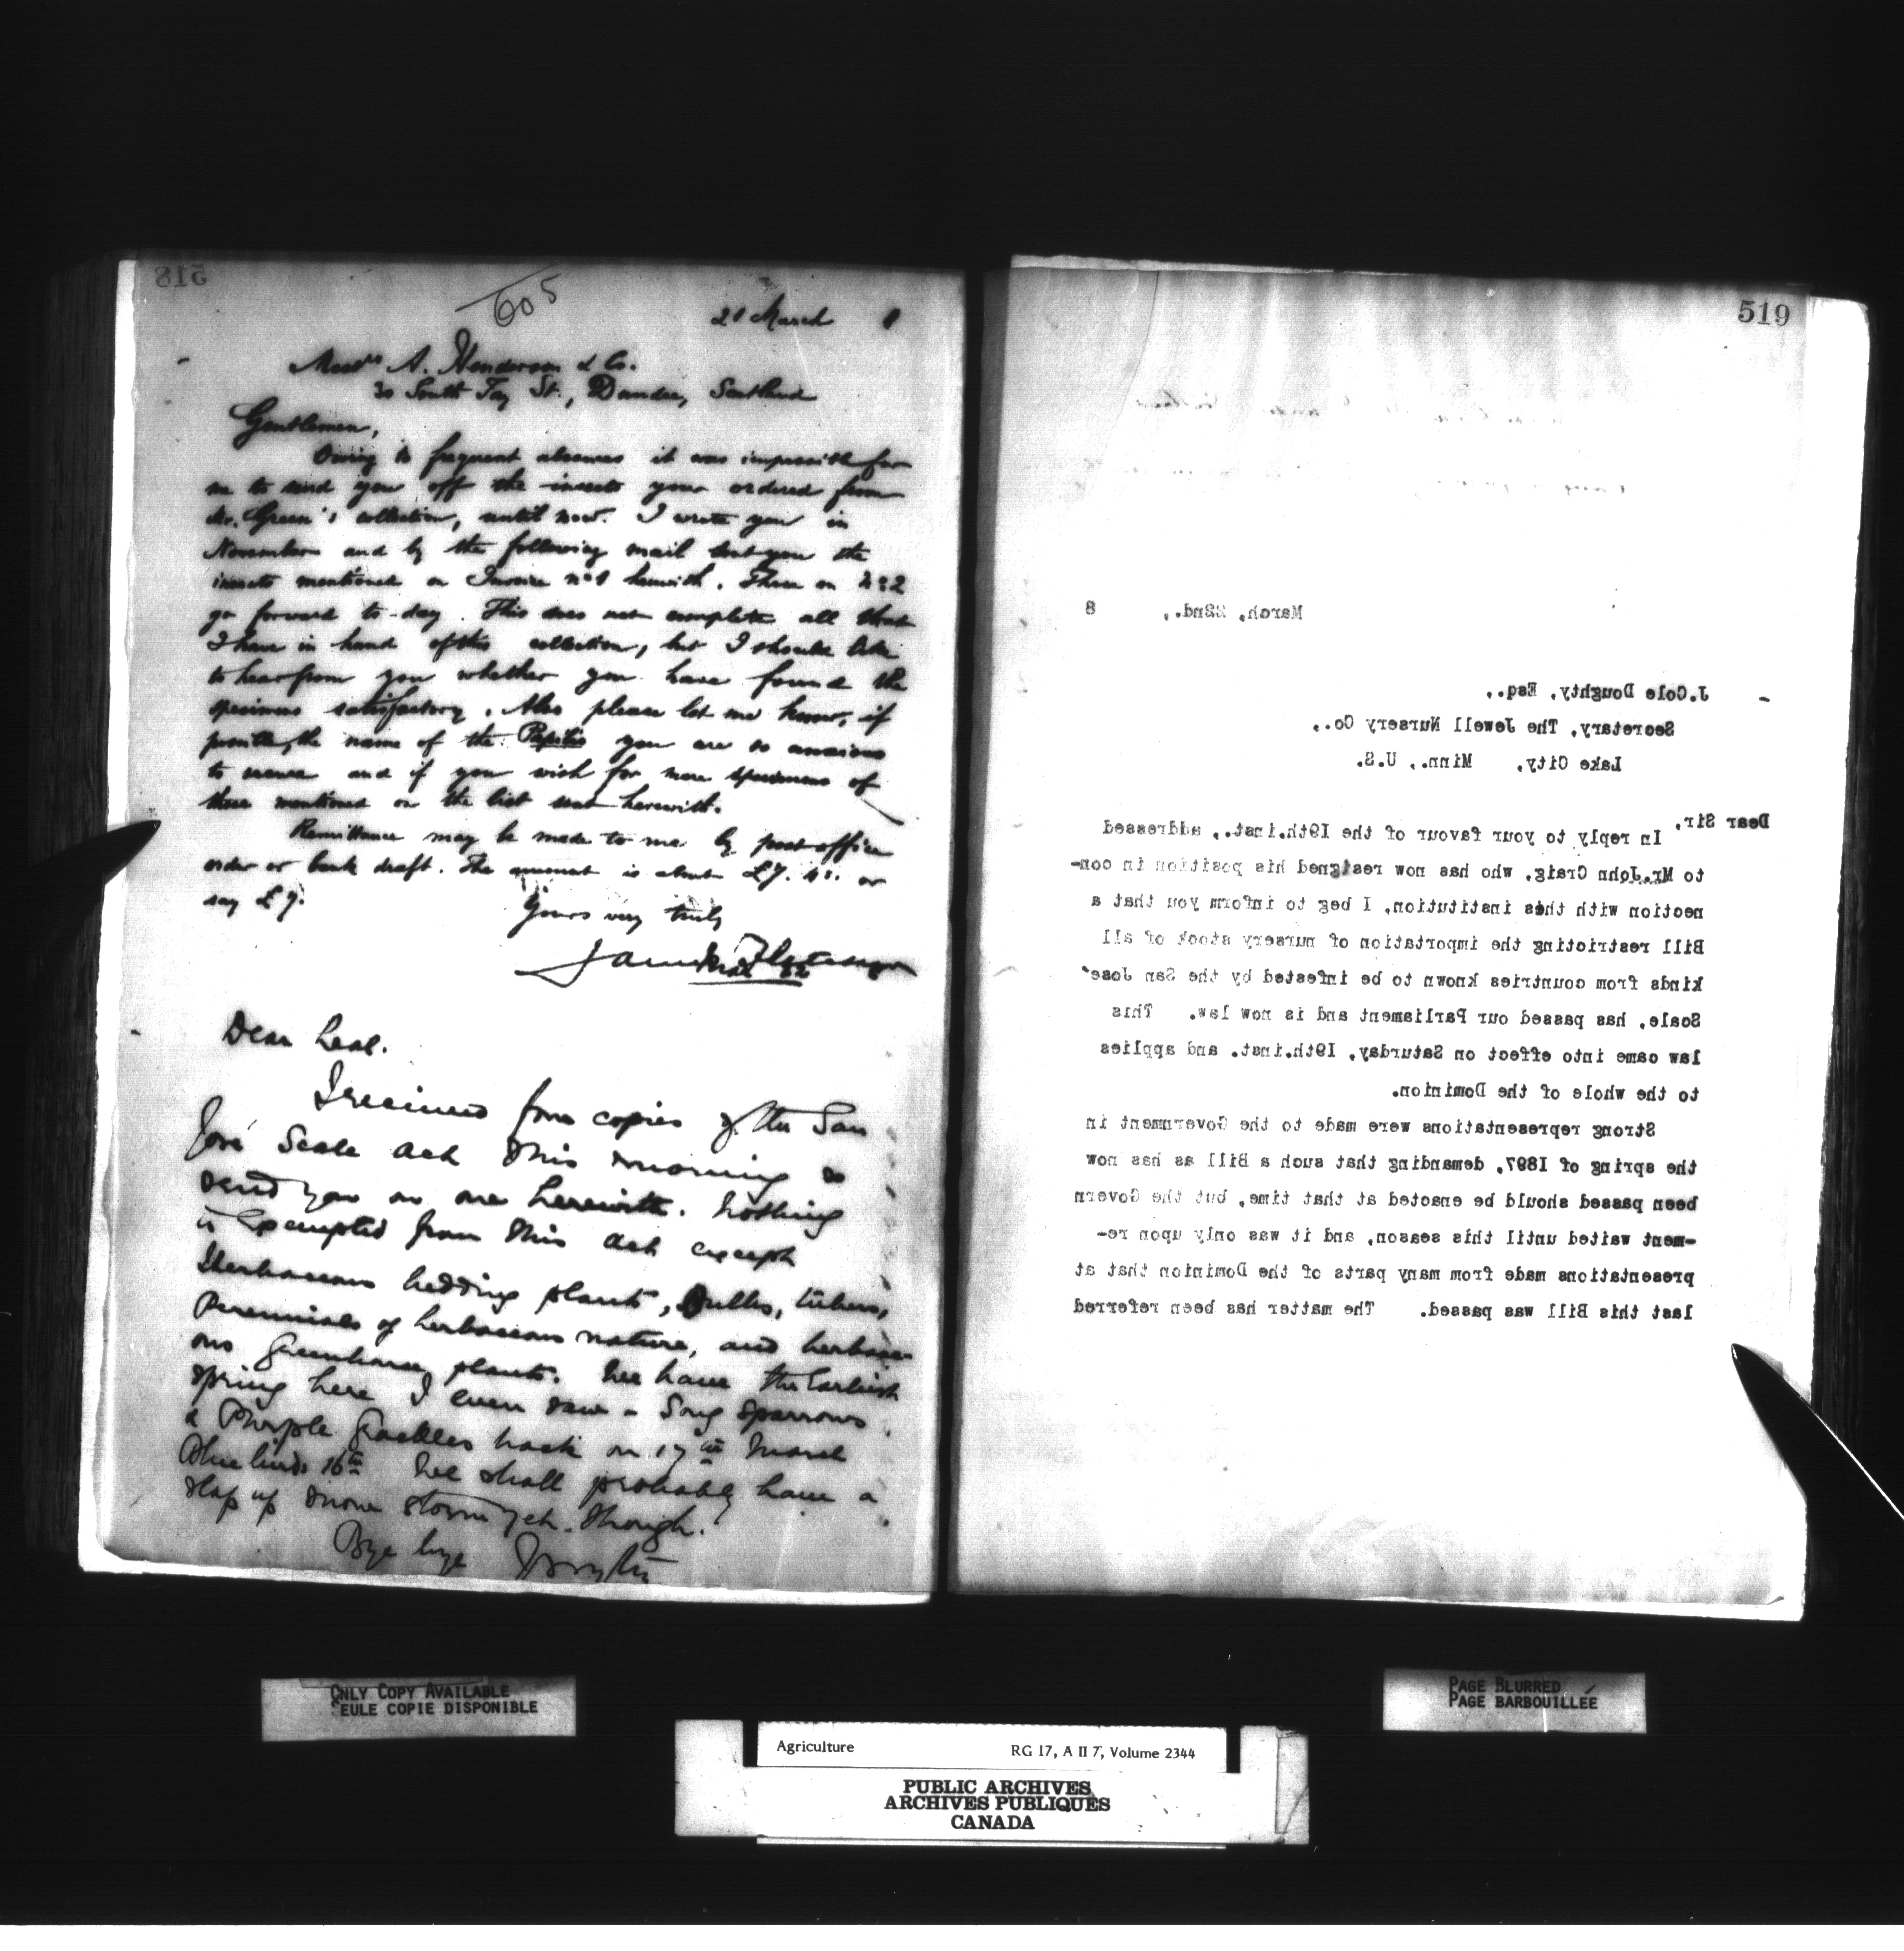 518
605
21 March 8
Messrs A. Henderson & Co.
30 South Tay St., Dundee, Scotland
Gentlemen,
Owing to frequent absences it was impossible for
me to send you off the insects your ordered from
Mr. Green's collection, until now. I wrote you in
November and by the following mail sent you the
insects mentioned on Invoice no 1 herewith. Those on No 2
go forward to-day. This does not complete all that
I have in hand of this collection, but I should like
to hear from you whether you have found the
specimens satisfactory. Also please let me know, if
possible, the name of the Papilio you are so anxious
to secure and if you wish for more specimens of
those mentioned on the list sent herewith.
Remittance may be made to me by post office
order or bank draft. The amount is about £7. 4s. or
say £7.
Yours very truly
James Fletcher
Mar 22
Dear Leal.
I received four copies of the San
José Scale act this morning so
send you on one herewith. Nothing
is exempted from this act except
Herbaceous bedding plants, Bulbs, tubers,
Perennials of herbaceous nature, and herbace-
ous Greenhouse plants. We have the Earliest
spring here I ever saw - Song Sparrows
& Purple Grackles back on 17th March
Blue birds 16th We shall probably have a
slap up snow storm yet though.
Bye bye
519
March, 22nd., 8
J.Cole Doughty, Esq.,
Secretary, The Jewell Nursery Co.,
Lake City, Minn., U.S.
Dear Sir,
In reply to your favour of the 19th.inst., addressed
to Mr.John Craig, who has now resigned his position in con-
nection with this institution, I beg to inform you that a
Bill restricting the importation of nursery stock of all
kinds from countries known to be infested by the San Jose'
Scale, has passed our Parliament and is now law. This
law came into effect on Saturday, 19th.inst. and applies
to the whole of the Dominion.
Strong representations were made to the Government in
the spring of 1897, demanding that such a Bill as has now
been passed should be enacted at that time, but the Govern
-ment waited until this season, and it was only upon re-
presentations made from many parts of the Dominion that at
last this Bill was passed. The matter has been referred
ONLY COPY AVAILABLE
SEULE COPIE DISPONIBLE
PAGE BLURRED
PAGE BARBOUILLÉE
Agriculture RG 17, A II 7, Volume 2344
PUBLIC ARCHIVES
ARCHIVES PUBLIQUES
CANADA